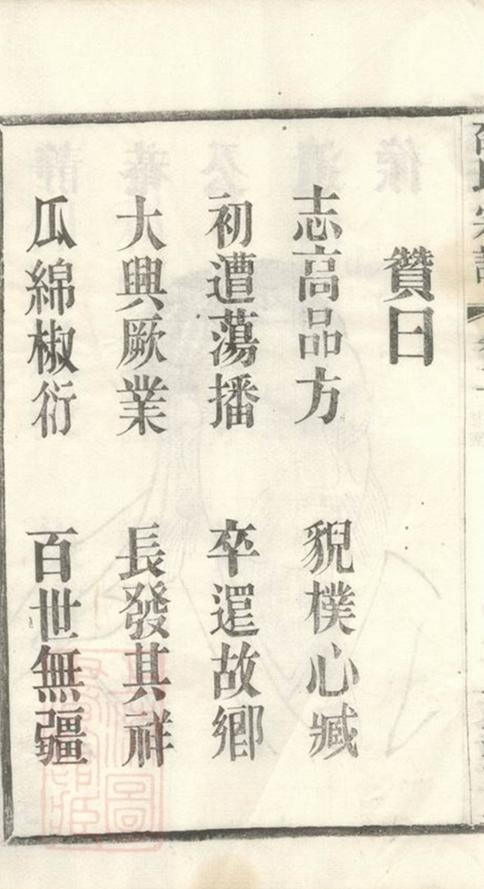 贊曰
志高品方 貌樸心臧
初遭蕩播 卒還故鄉
大興厥業 長發其祥
瓜綿椒衍 百世無疆